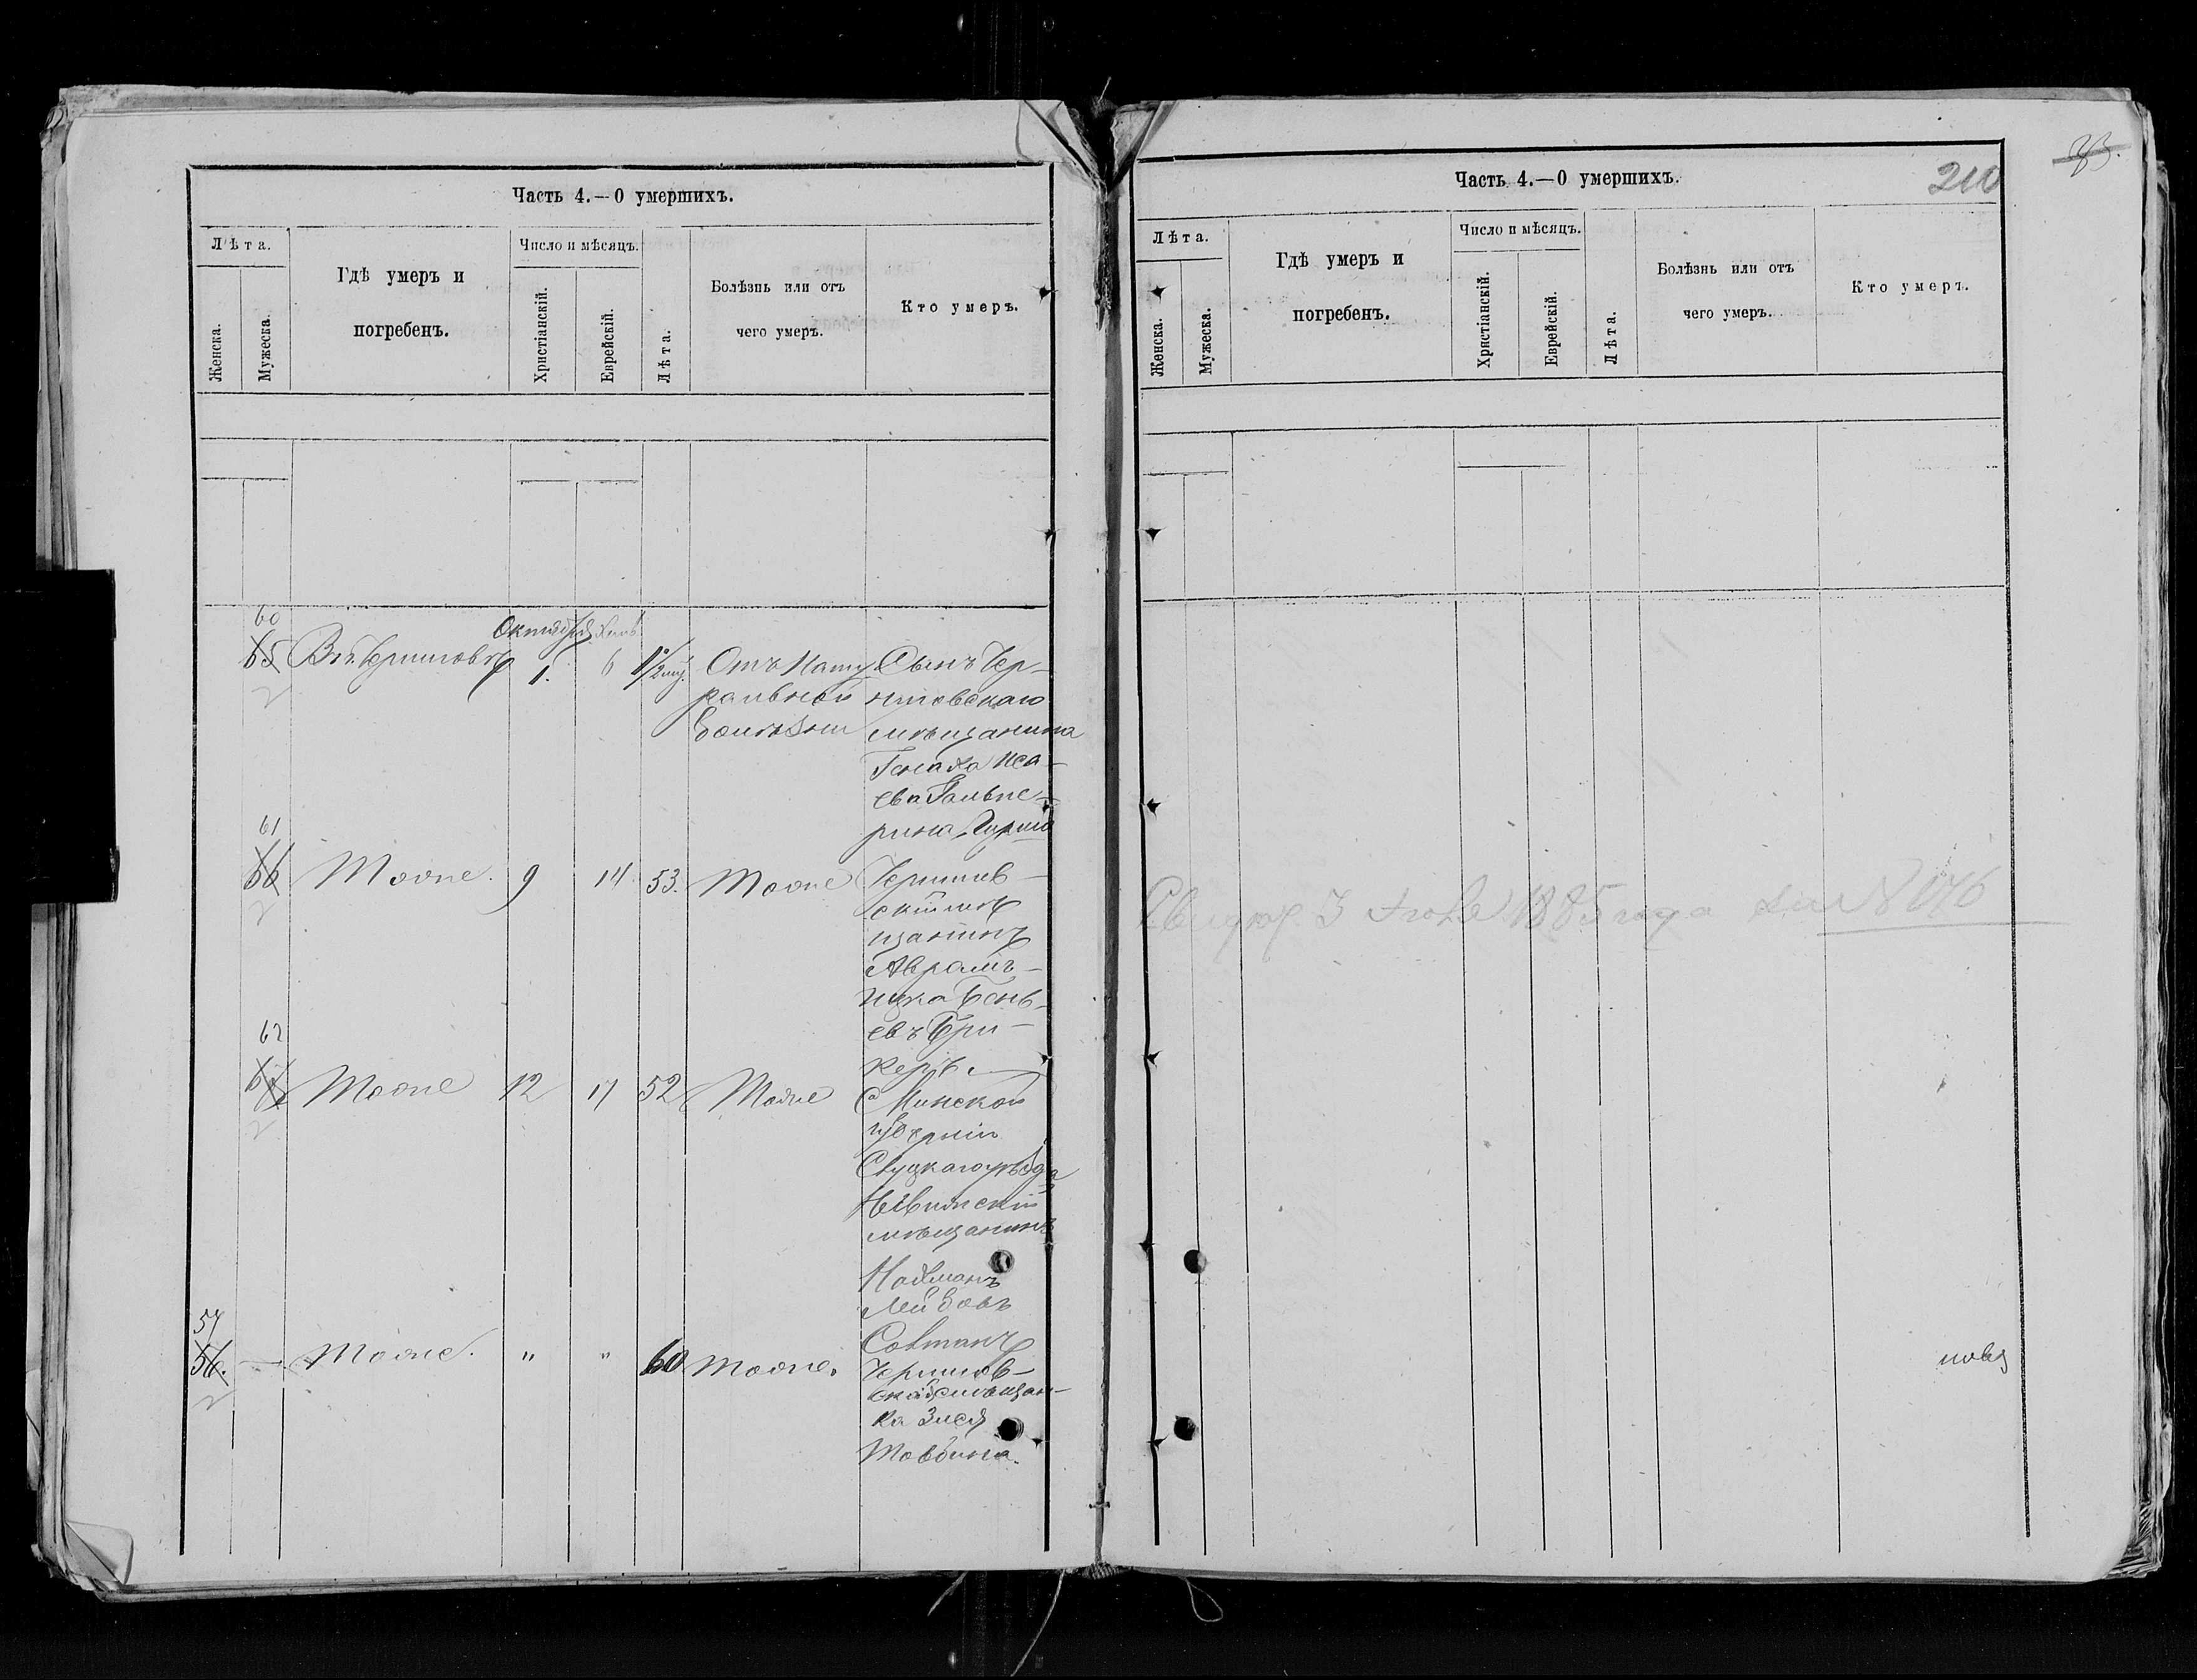 Часть 4.—О умершихъ.
Лѣта.
Женска.
Мужеска.
Гдѣ умеръ и
погребенъ.
Число и мѣсяцъ.
Христіанскій.
Еврейскій.
Лѣта.
Болѣзнь или отъ
чего умеръ.
Кто умеръ.
Октября
60
65 Въ г. Черниговѣ 1. 6 Отъ нату
ральной
болѣзни
Сынъ Чер-
ниговскаго
мѣщанина
Иса-
ева Гальпе-
рина, Гирша
61
66 Тоже. 9 14 53. Тоже
Чернигов-
скій мѣ
щанинъ
Аврамъ-
Ицка
евъ Бри-
керъ.
62
67 Тоже 12 17 52 Тоже
Минской
губерніи
Слуцкаго уѣзда
мѣщанинъ
Нохманъ
Лейбовъ
57
56. — Тоже. " " 60 Тоже.
Чернигов-
ская мѣщан-
ка Злея
Товбина.
Часть 4.—О умершихъ.
210
Лѣта.
Женска.
Мужеска.
Гдѣ умеръ и
погребенъ.
Число и мѣсяцъ.
Христіанскій.
Еврейскій.
Лѣта.
Болѣзнь или отъ
чего умеръ.
Кто умеръ.
3 1885 года за №